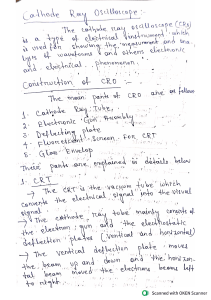 Cathode Ray Oscilloscope :-
The cathode ray oscilloscope (CRO)
is a type of electrical instrument which
is used for showing the measurement and ana
lysis of waveforms and others electronic
and electrical phenomenon.
Construction of CRO
The main parts of CRO are as follows
1. Cathode Ray Tube.
2. Electronic Gun Assembly
3. Deflecting plate
4. Fluorescent Screen For CRT
5. Glass Envelop
Their parts are explained in details below
1. CRT
→ The CRT is the vacuum tube which
converts the electrical signal into the visual
signal.
→ The cathode ray tube mainly consists of
the electron gun and the electrostatic
deflection plates (vertical and horizontal)
→ The vertical deflection plate moves
the beam up and down and the horizon-
tal beam moved the electrons beams left
to right.
Scanned with OKEN Scanner